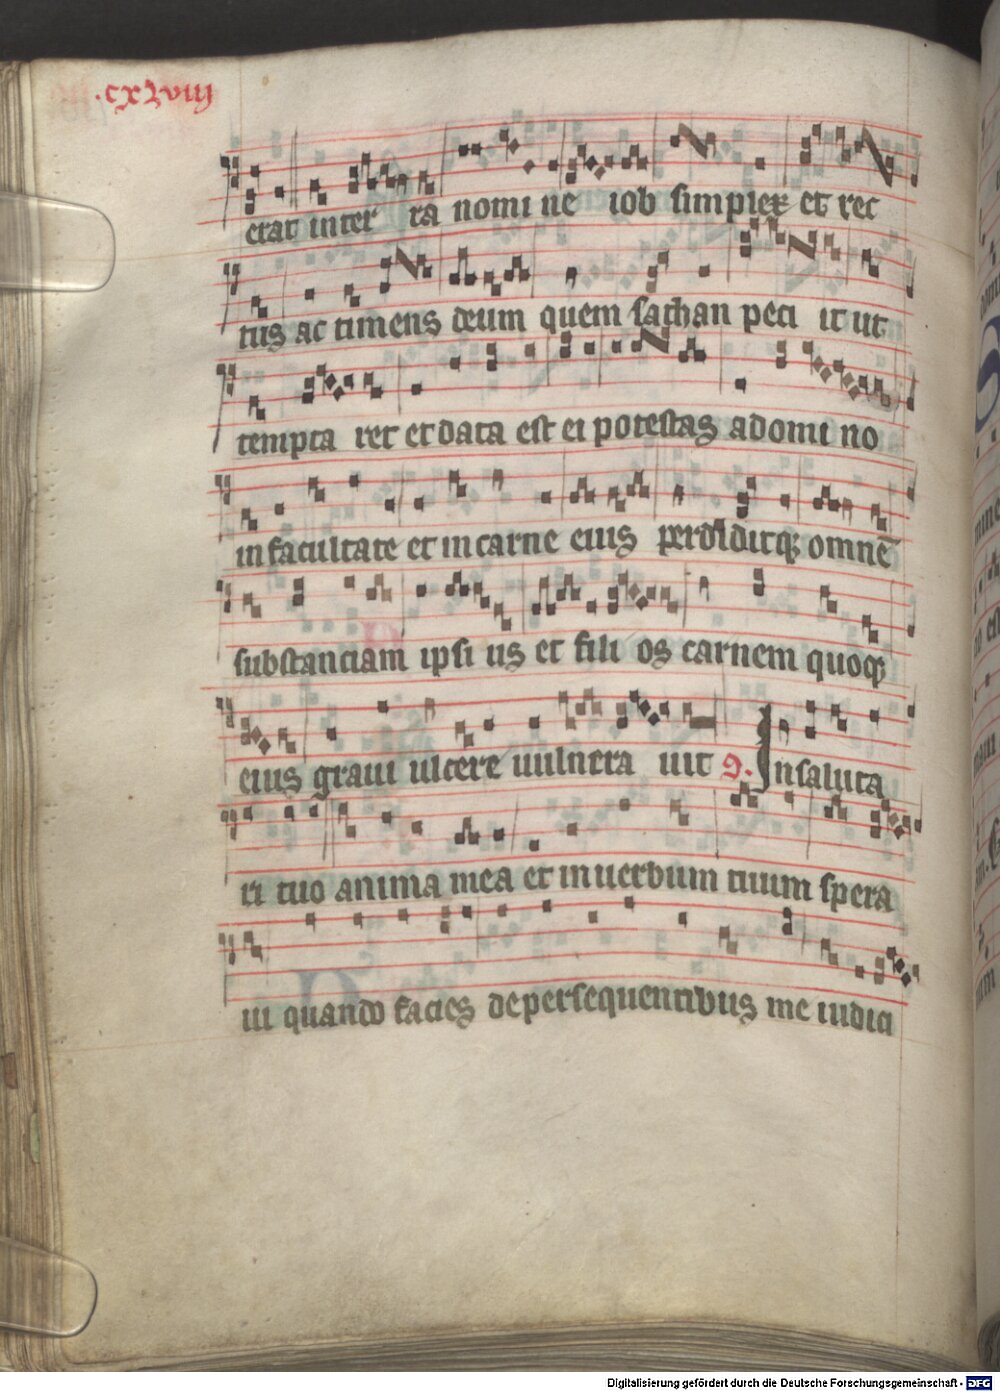 .cxlviij
erat inter ra nomi ne iob simplex et rec
tus ac timens deum quem sathan peti it ut
tempta ret et data est ei potestas a domi no
in facultate et in carne eius perdiditq; omnē
substanciam ipsi us et fili os carnem quoq;
eius graui ulcere uulnera uit In saluta
ri tuo anima mea et in uerbum tuum spera
ui quando facies de persequentibus me iudici
Digitalisierung gefördert durch die Deutsche Forschungsgemeinschaft - DFG